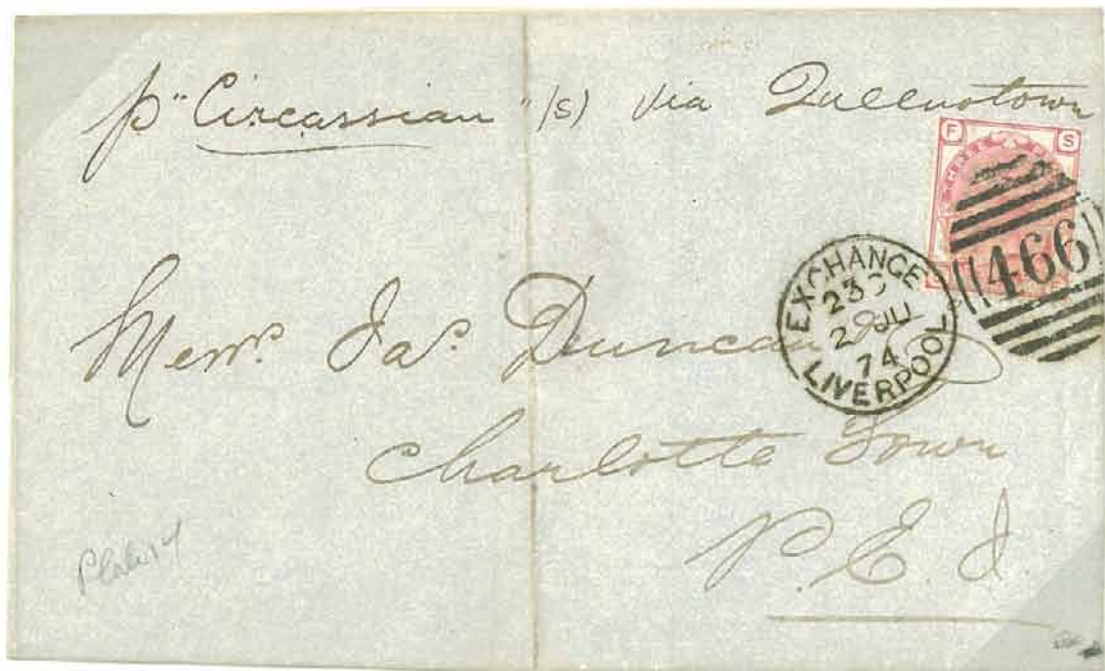 p "Circassian" /s) via Queenstown
F S
466
EXCHANGE
23
29 JU
74
LIVERPOOL
Messrs. Jas. Duncan
Charlotte Town
P. E. I.
Plate 14